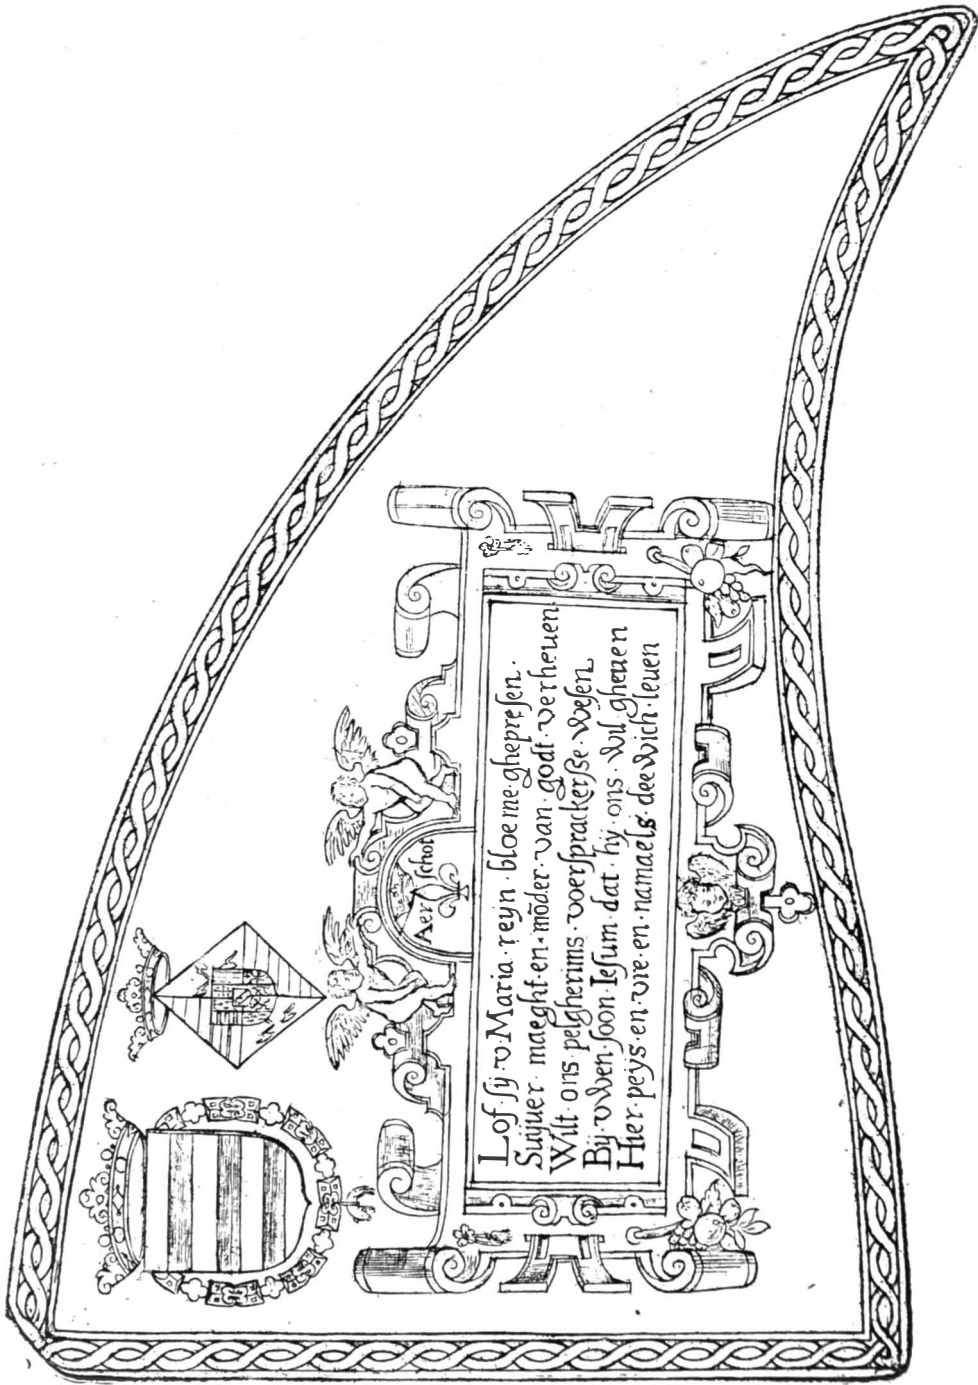 Aer schot
Lof sij v Maria · reyn · bloeme · ghepresen ·
Suijuer · maeght · en · mōder · van · godt · verheuen
Wilt · ons · pelgherims · voersprackersse · wesen
Bij · vwen · soon · Iesum · dat · hij · ons · wil · gheuen
Hier · peys · en · vre · en · namaels · deewich · leuen